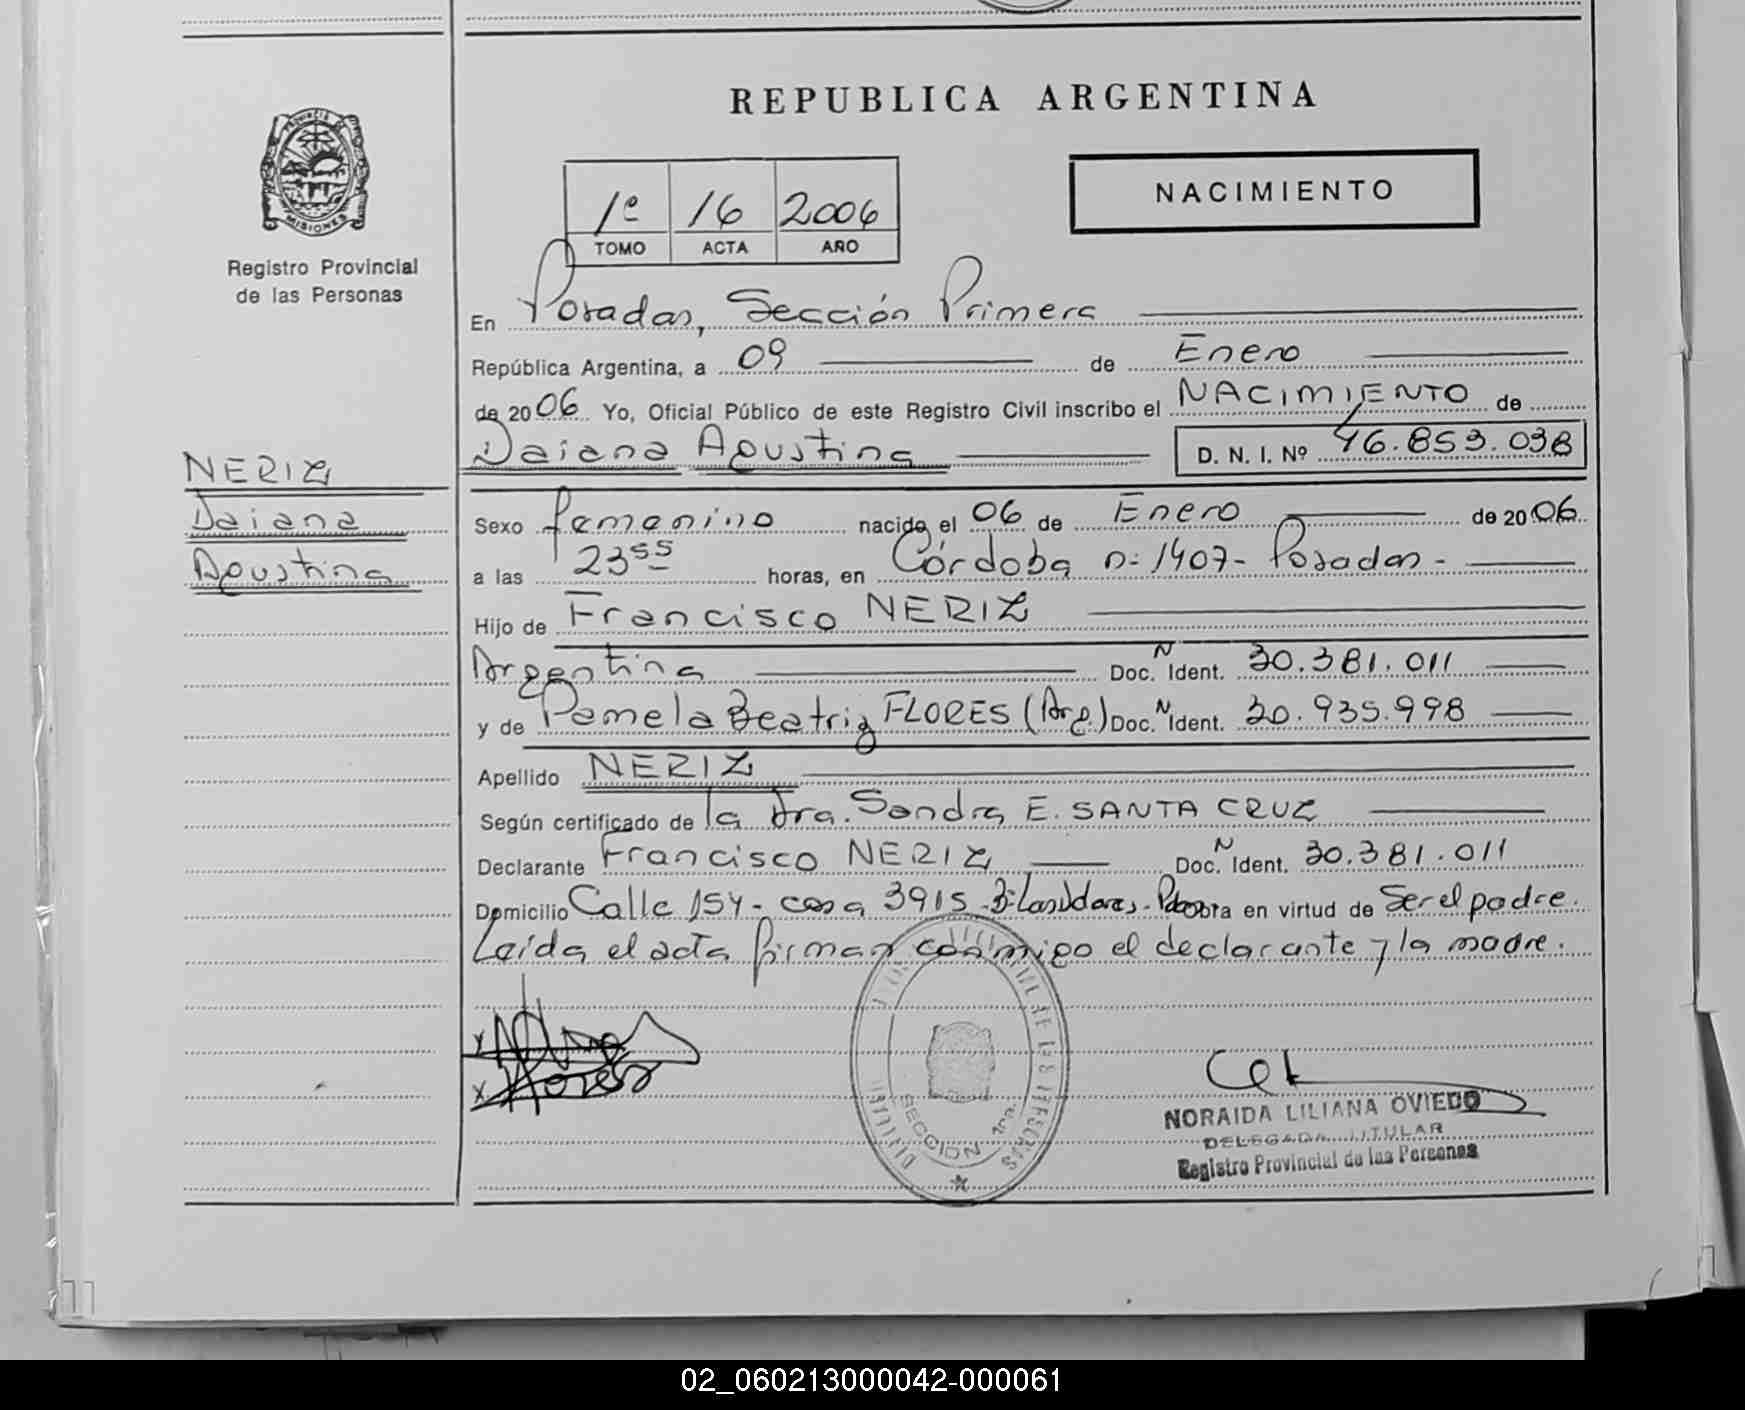 REPUBLICA ARGENTINA
PROVINCIA DE
MISIONES
Registro Provincial
de las Personas
1º 16 2006
TOMO ACTA AÑO
NACIMIENTO
En Posadas, Sección Primera
República Argentina, a 09 de Enero
de 2006 Yo, Oficial Público de este Registro Civil inscribo el NACIMIENTO de
Daiana Agustina D. N. I. Nº 46.853.038
NERIZ
Daiana
Agustina
Sexo femenino nacido el 06 de Enero de 2006
a las 23⁵⁵ horas, en Córdoba n: 1407- Posadas -
Hijo de Francisco NERIZ
Argentina Doc. N Ident. 30.381.011
y de Pamela Beatriz FLORES (Arg.) Doc. N Ident. 30.935.998
Apellido NERIZ
Según certificado de la Dra. Sandra E. SANTA CRUZ
Declarante Francisco NERIZ Doc. N Ident. 30.381.011
Domicilio Calle 154 - casa 3915 - Obra en virtud de Ser el padre.
Leída el acta firman conmigo el declarante y la madre.
x
x Flores
SECCION 1ra.
NORAIDA LILIANA OVIEDO
DELEGADA TITULAR
Registro Provincial de las Personas
02_060213000042-000061